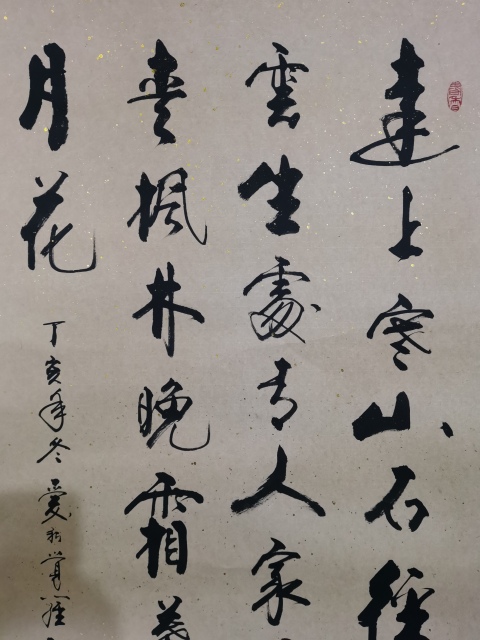 遠上寒山石徑
雲生處有人家
愛楓林晚霜葉
月花
丁亥年冬